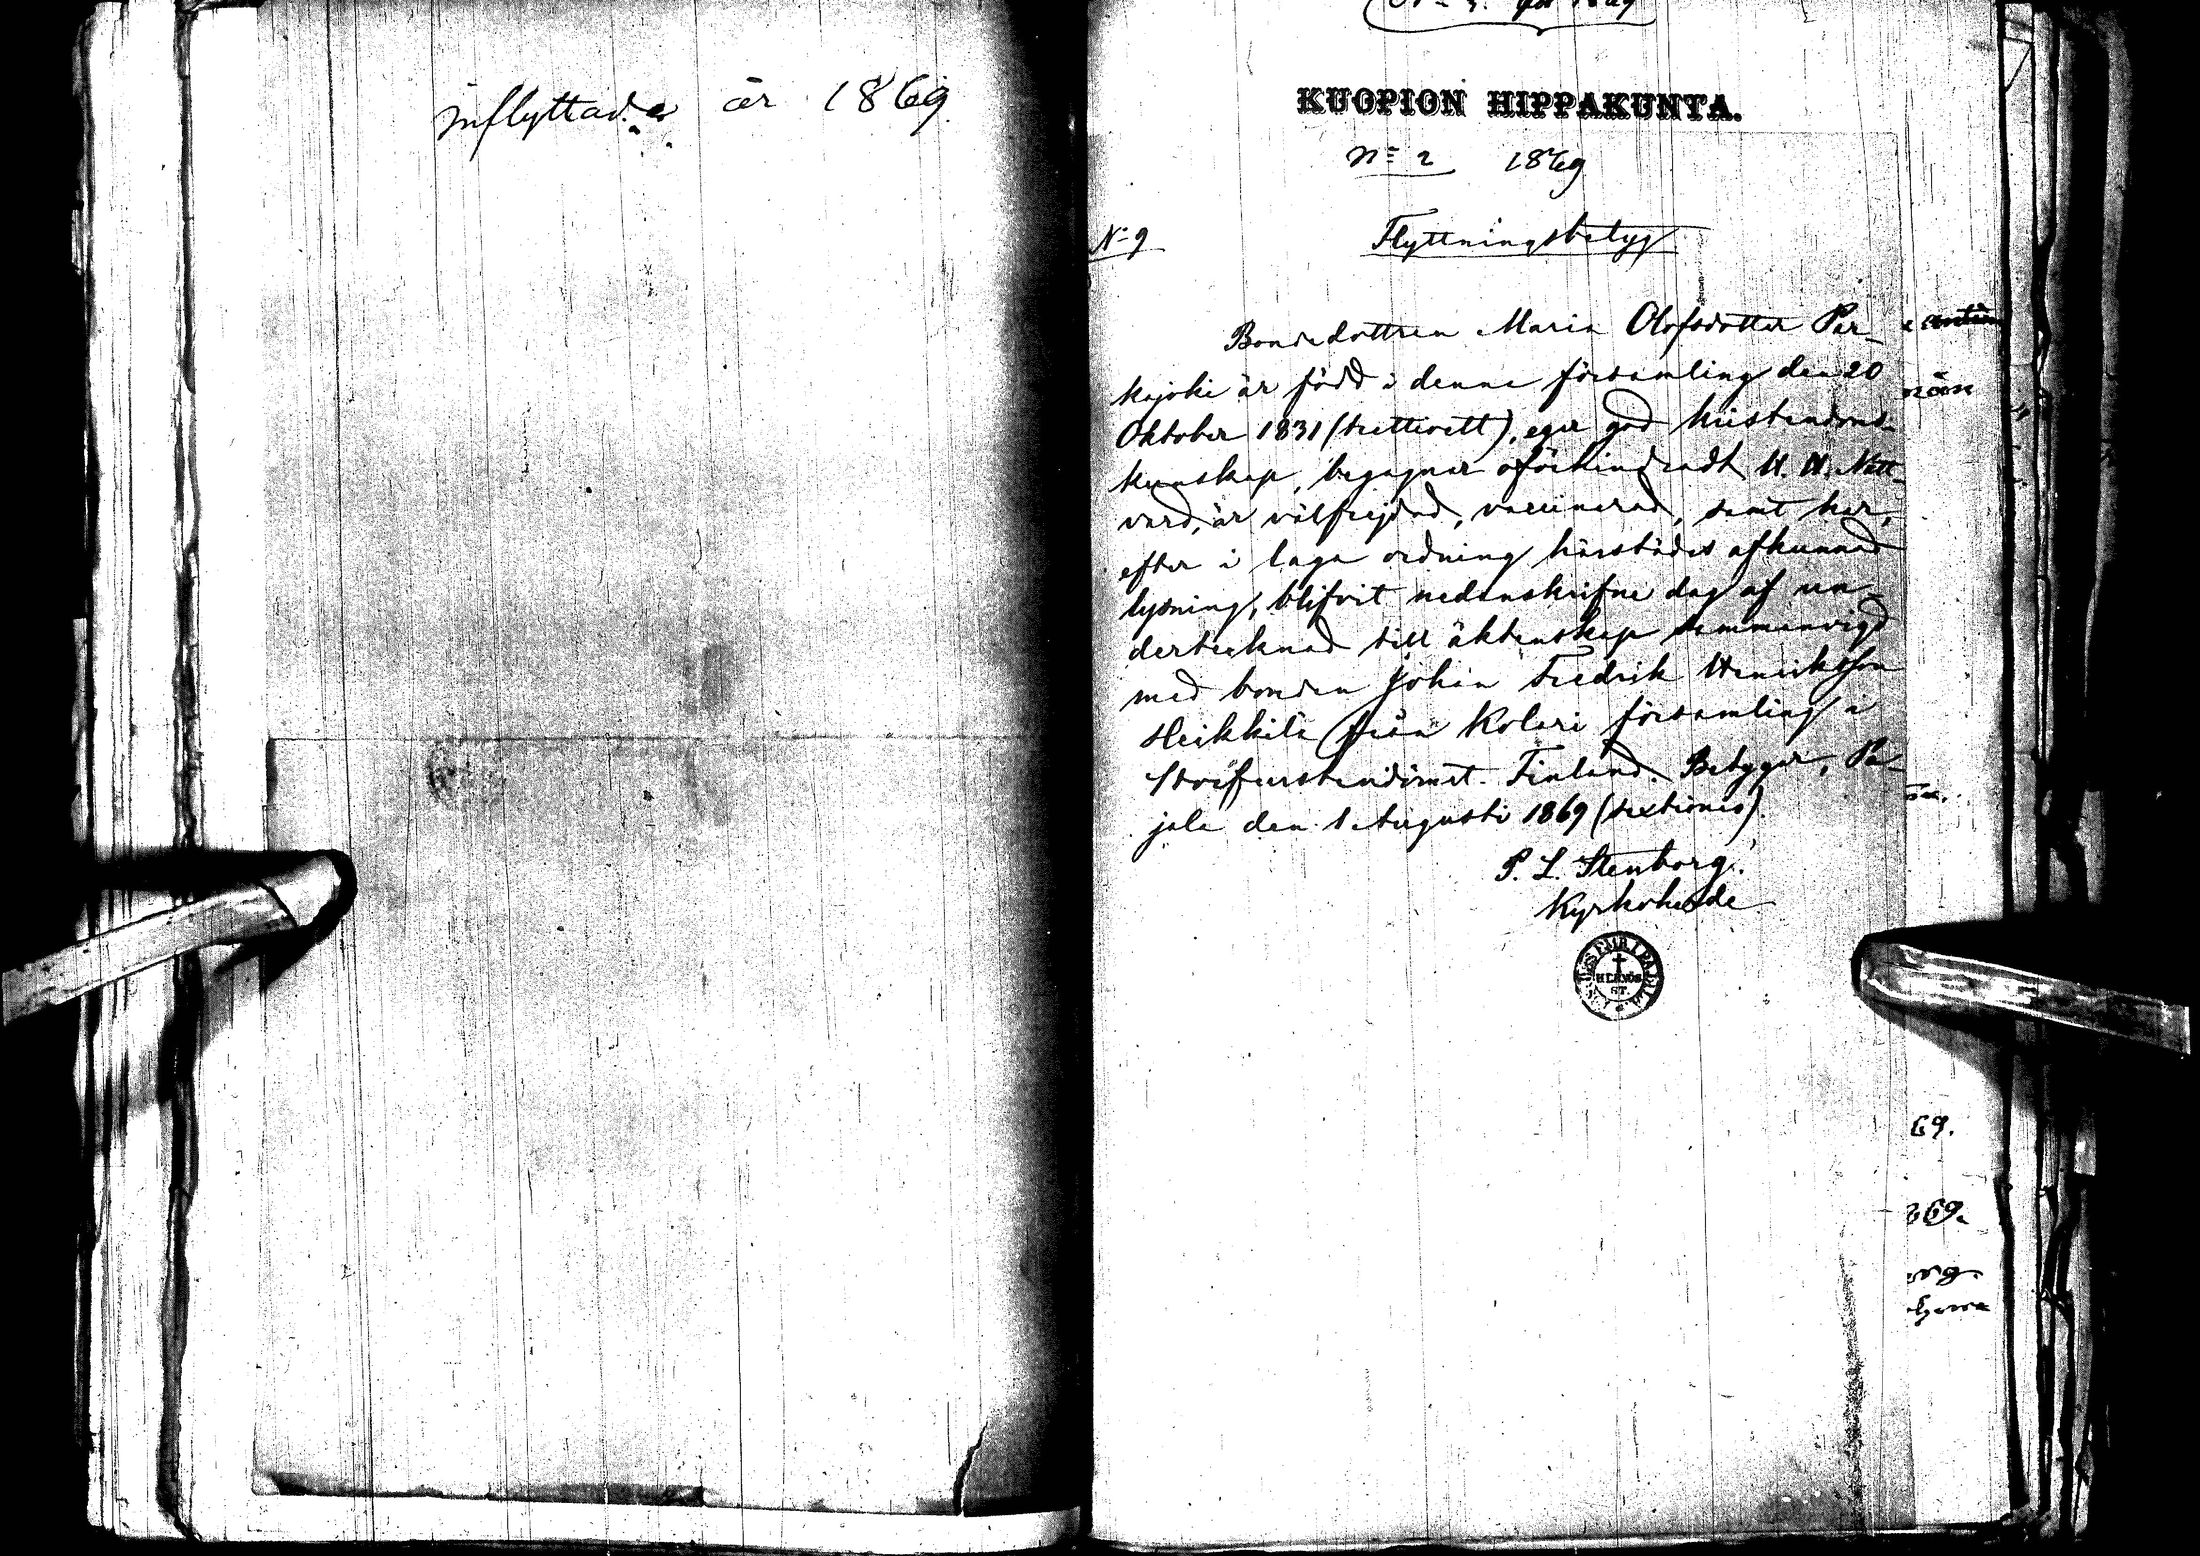 inflyttade år 1869.
KUOPION HIPPAKUNTA.
No 2 1869
No 9
Flyttningsbetyg
Bondedottren Maria Olofsdotter Par-
kajoki är född i denna församling den 20
Oktober 1831 (trettioett), eger god kristendoms-
kunskap, begagnar oförhindradt H. H. Natt-
vard, är välfrejdad, vaccinerad, samt har,
efter i laga ordning härstädes afkunnad
lysning, blifvit nedanskrifne dag af un-
dertecknad till äktenskap sammanvigd
med bonden Johan Fredrik Henriksson
Heikkilä från Kolari församling i
Storfurstendömet Finland. Betygar, Pa-
jala den 1 Augusti 1869 (sextionio).
P. L. Stenborg.
Kyrkoherde
HERNÖS
ST.
69.
69.